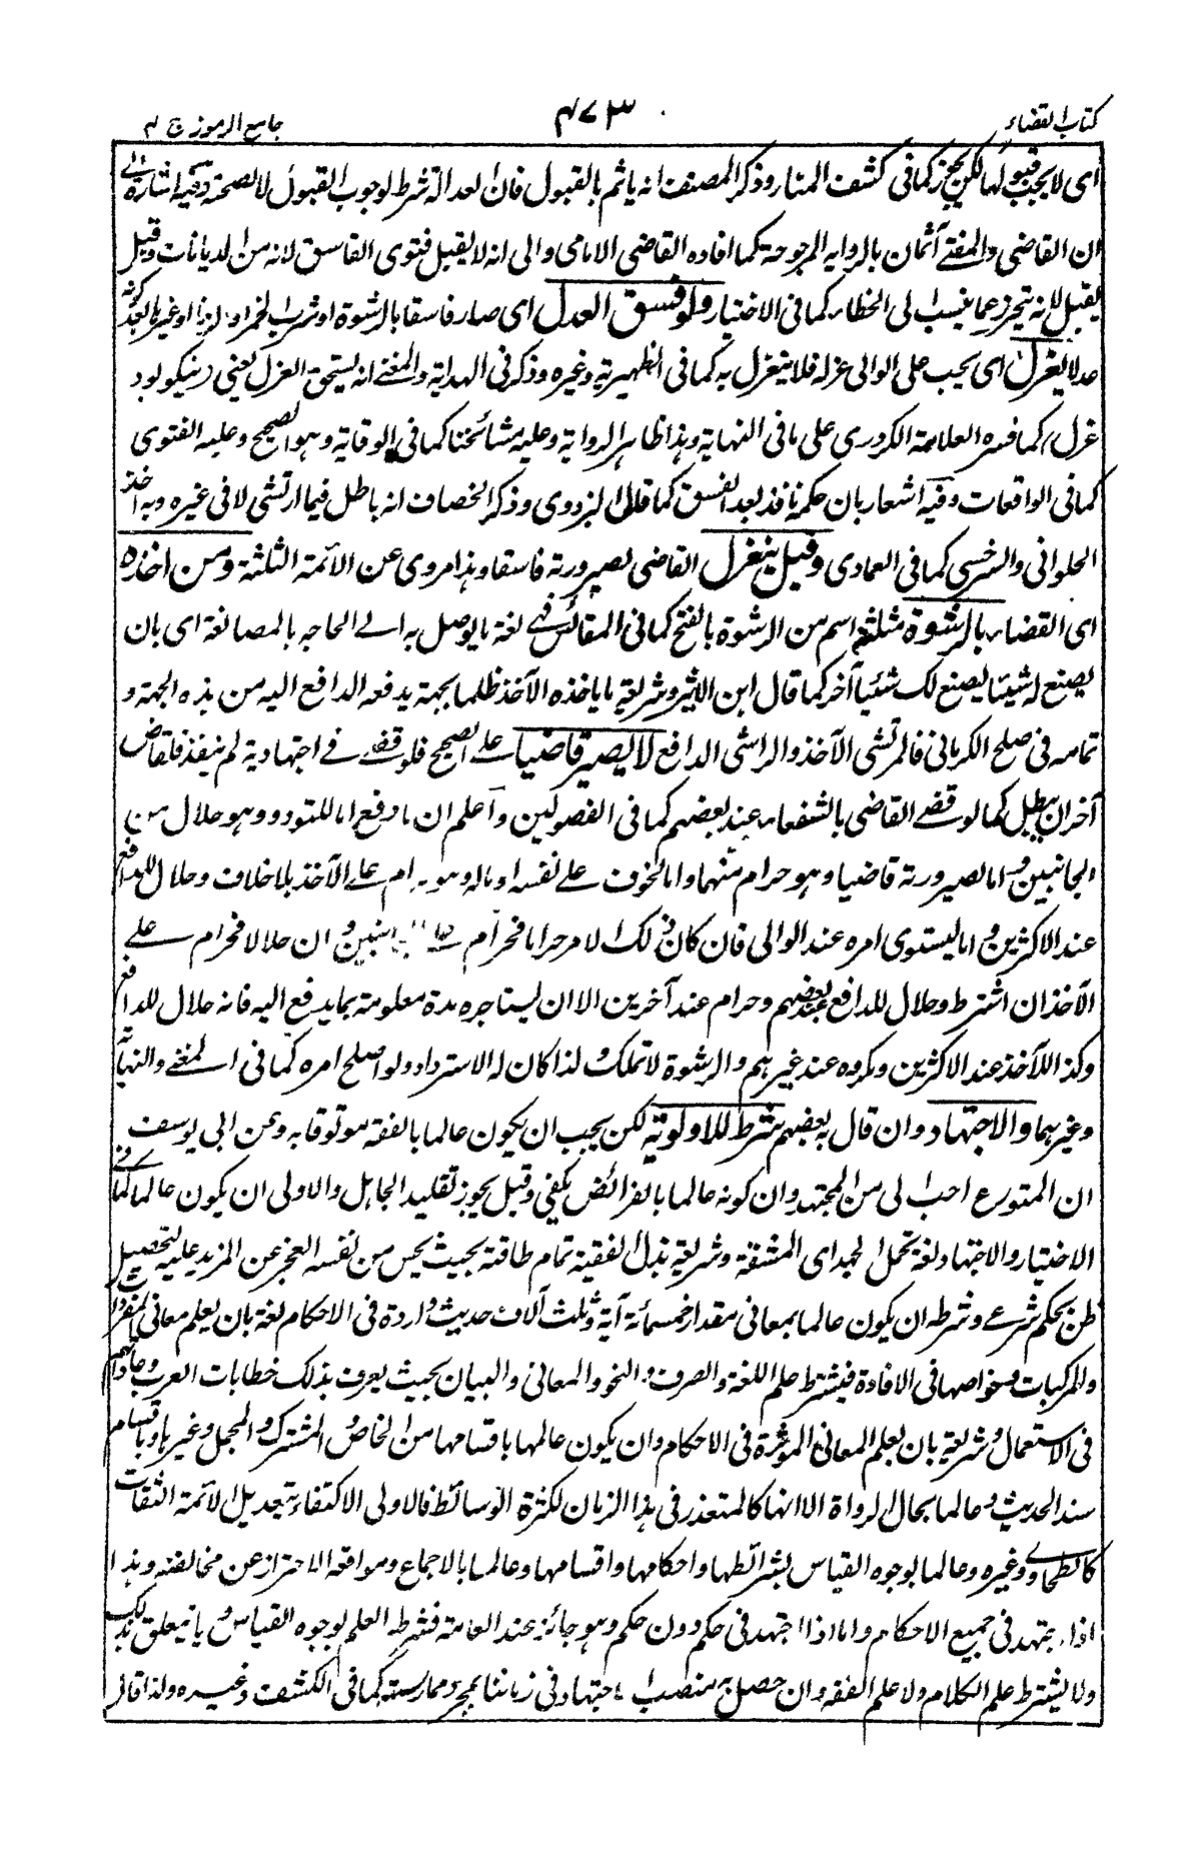 كتاب القضاء
٤٧٣
جامع الرموز ج ٢
اى لا يجب قبولها لكن يجوز كما فى كشف المنار وذكر المصنف انه ياثم بالقبول فان العدالة شرط لوجوب القبول لا لصحته وفيه اشارة الى
ان القاضى والمفتى آثمان بالرواية المرجوحة كما افاده القاضى الامامى والى انه لا يقبل فتوى الفاسق لانه من الديانات وقيل
يقبل لانه يتحرز عما ينسب الى الخطاء كما فى الاختيار ولو فسق العدل اى صار فاسقا بالرشوة او شرب الخمر او الزنا او غيرها بعد كونه
عدلا يعزل اى يجب على الوالى عزله فلا ينعزل به كما فى الظهيرية وغيره وذكر فى الهداية والمغنى انه يستحق العزل يعنى در نيكو بود
عزل كما فسره العلامة الكردرى على ما فى النهاية وهذا ظاهر الرواية وعليه مشائخنا كما فى الوقاية وهو الصحيح وعليه الفتوى
كما فى الواقعات وفيه اشعار بان حكمه نافذ بعد الفسق كما قال البزدوى وذكر الخصاف انه باطل فيما ارتشى لا فى غيره وبه اخذ
الحلوانى والسرخسى كما فى العمادى وقيل ينعزل القاضى لصيرورته فاسقا وهذا مروى عن الائمة الثلثة ومن اخذه
اى القضاء بالرشوة مثلثة اسم من الرشوة بالفتح كما فى المقائس فهى لغة ما يوصل به الى الحاجه بالمصانعة اى بان
يصنع له شيئا ليصنع لك شيئا آخر كما قال ابن الاثير وشريعة ما ياخذه الآخذ ظلما بجهة يدفعه الدافع اليه من هذه الجهة و
تمامه فى صلح الكرمانى فالمرتشى الآخذ والراشى الدافع لا يصير قاضيا على الصحيح فلو قضى فى اجتهادية لم ينفذ فلقاض
آخر ان يبطل كما لو قضى القاضى بالشفعاء عند بعضهم كما فى الفصولين واعلم ان ما دفع اما للتودد وهو حلال من
الجانبين واما لصيرورته قاضيا وهو حرام منهما واما لخوف على نفسه او ماله وهو حرام على الآخذ بلا خلاف وحلال للدافع
عند الاكثرين واما ليستوى امره عند الوالى فان كان ذلك الامر حراما فحرام من الجانبين وان حلالا فحرام على
الآخذ ان اشترط وحلال للدافع عند بعضهم وحرام عند آخرين الا ان يستاجره مدة معلومة بما يدفع اليه فانه حلال للدافع
وكذا للآخذ عند الاكثرين ومكروه عند غيرهم والرشوة لا تملك ولذا كان له الاسترداد ولو اصلح امره كما فى المغنى والنهاية
وغيرهما والاجتهاد وان قال به بعضهم شرط للاولوية لكن يجب ان يكون عالما بالفقه موثوقا به وعن ابى يوسف
ان المتورع احب الى من المجتهد وان كونه عالما بالفرائض يكفى وقيل يجوز تقليد الجاهل والاولى ان يكون عالما كما فى
الاختيار والاجتهاد لغة تحمل الجهد اى المشقة وشريعة بذل الفقيه تمام طاقته بحيث يحس من نفسه العجز عن المزيد عليه لتحصيل
ظن بحكم شرعى وشرطه ان يكون عالما بمعانى مقدار خمسمائة آية وثلث آلاف حديث واردة فى الاحكام لغة بان يعلم معانى المفردات
والمركبات وخواصها فى الافادة فيشترط علم اللغة والصرف والنحو والمعانى والبيان بحيث يعرف بذلك خطابات العرب وعاداتهم
فى الاستعمال وشريعة بان يعلم المعانى المؤثرة فى الاحكام وان يكون عالمها باقسامها من الخاص والمشترك والمجمل وغيرها وباقسام
سند الحديث وعالما بحال الرواة الا انها كالمتعذر فى هذا الزمان لكثرة الوسائط فالاولى الاكتفاء بتعديل الائمة الثقات
كالطحاوى وغيره وعالما لوجوه القياس بشرائطها واحكامها واقسامها وعالما بالاجماع ومواقعه الاحتراز عن مخالفته وهذا
اذا اجتهد فى جميع الاحكام واما اذا اجتهد فى حكم دون حكم وهو جائز عند العامة فشرطه العلم لوجوه القياس وما يتعلق بذلك
ولا يشترط علم الكلام ولا علم الفقه وان حصل به منصب الاجتهاد فى زماننا بمجرد ممارسته كما فى الكشف وغيره ولذا قال